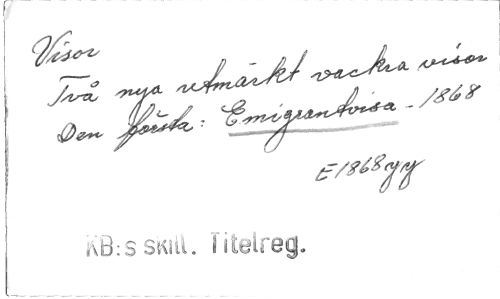 Visor
Två nya utmärkt vackra visor
Den första: Emigrantvisa - 1868
E1868yy
KB:s skill. Titelreg.